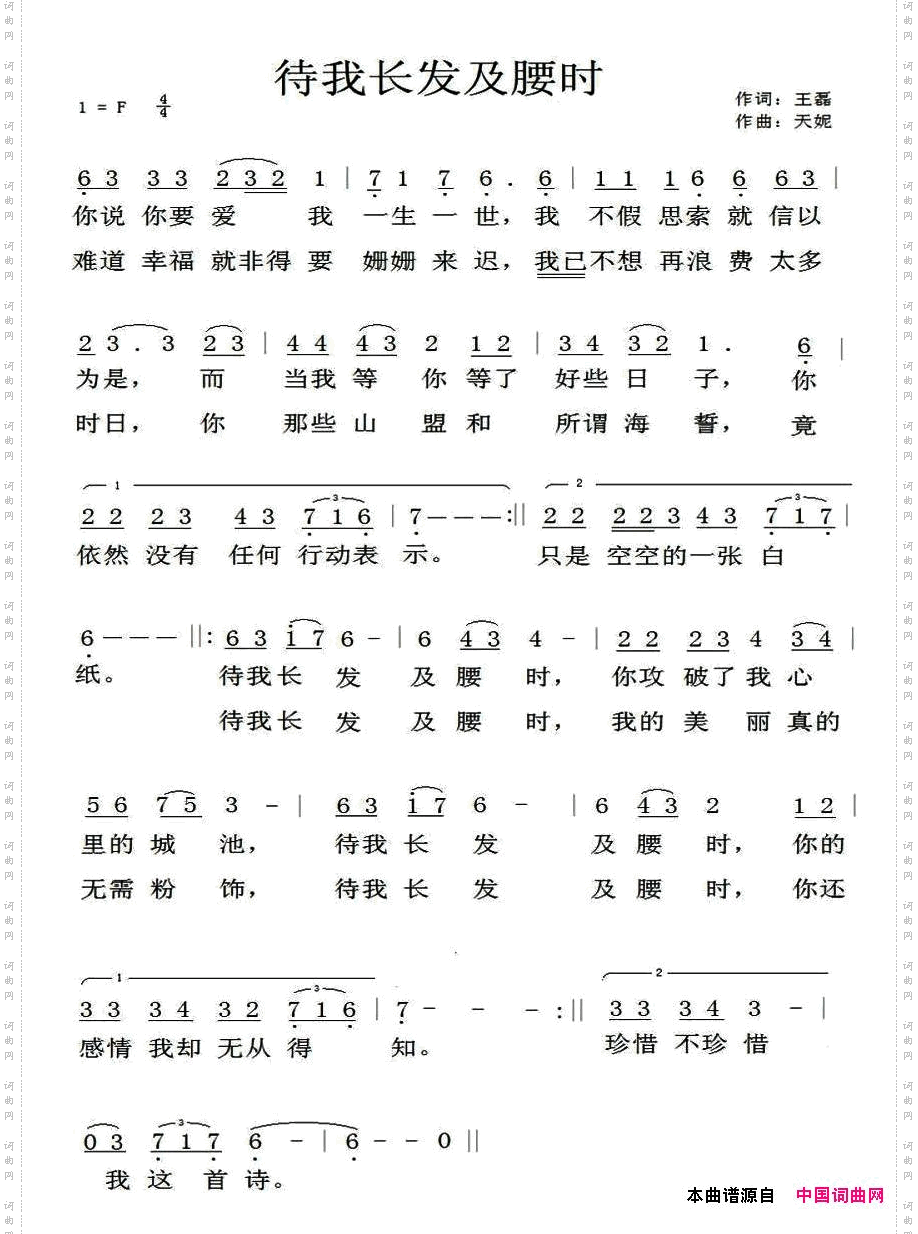 待我长发及腰时
1 = F 4/4
作词：王磊
作曲：天妮
6 3 3 3 2 3 2 1 | 7 1 7 6 . 6 | 1 1 1 6 6 6 3 |
你说 你要 爱 我 一生 一 世，我 不假 思索 就 信以
难道 幸福 就非得 要 姗姗 来 迟，我已不想 再浪 费 太多
2 3 . 3 2 3 | 4 4 4 3 2 1 2 | 3 4 3 2 1 . 6 |
为是， 而 当我 等 你 等了 好些 日 子， 你
时日， 你 那些 山 盟 和 所谓 海 誓， 竟
1 2
2 2 2 3 4 3 7 1 6 | 7 — — — :|| 2 2 2 2 3 4 3 7 1 7 |
依然 没有 任何 行动表 示。 只是 空空的一张 白
6 — — — ||: 6 3 i 7 6 - | 6 4 3 4 - | 2 2 2 3 4 3 4 |
纸。 待我长 发 及 腰 时， 你攻 破了 我 心
待我长 发 及 腰 时， 我的 美 丽 真的
5 6 7 5 3 - | 6 3 i 7 6 - | 6 4 3 2 1 2 |
里的 城 池， 待我 长 发 及 腰 时， 你的
无需 粉 饰， 待我 长 发 及 腰 时， 你还
1 2
3 3 3 4 3 2 7 1 6 | 7 - - - :|| 3 3 3 4 3 - |
感情 我却 无从 得 知。 珍惜 不珍 惜
0 3 7 1 7 6 - | 6 - - 0 ||
我 这 首 诗。
本曲谱源自 中国词曲网
词曲网